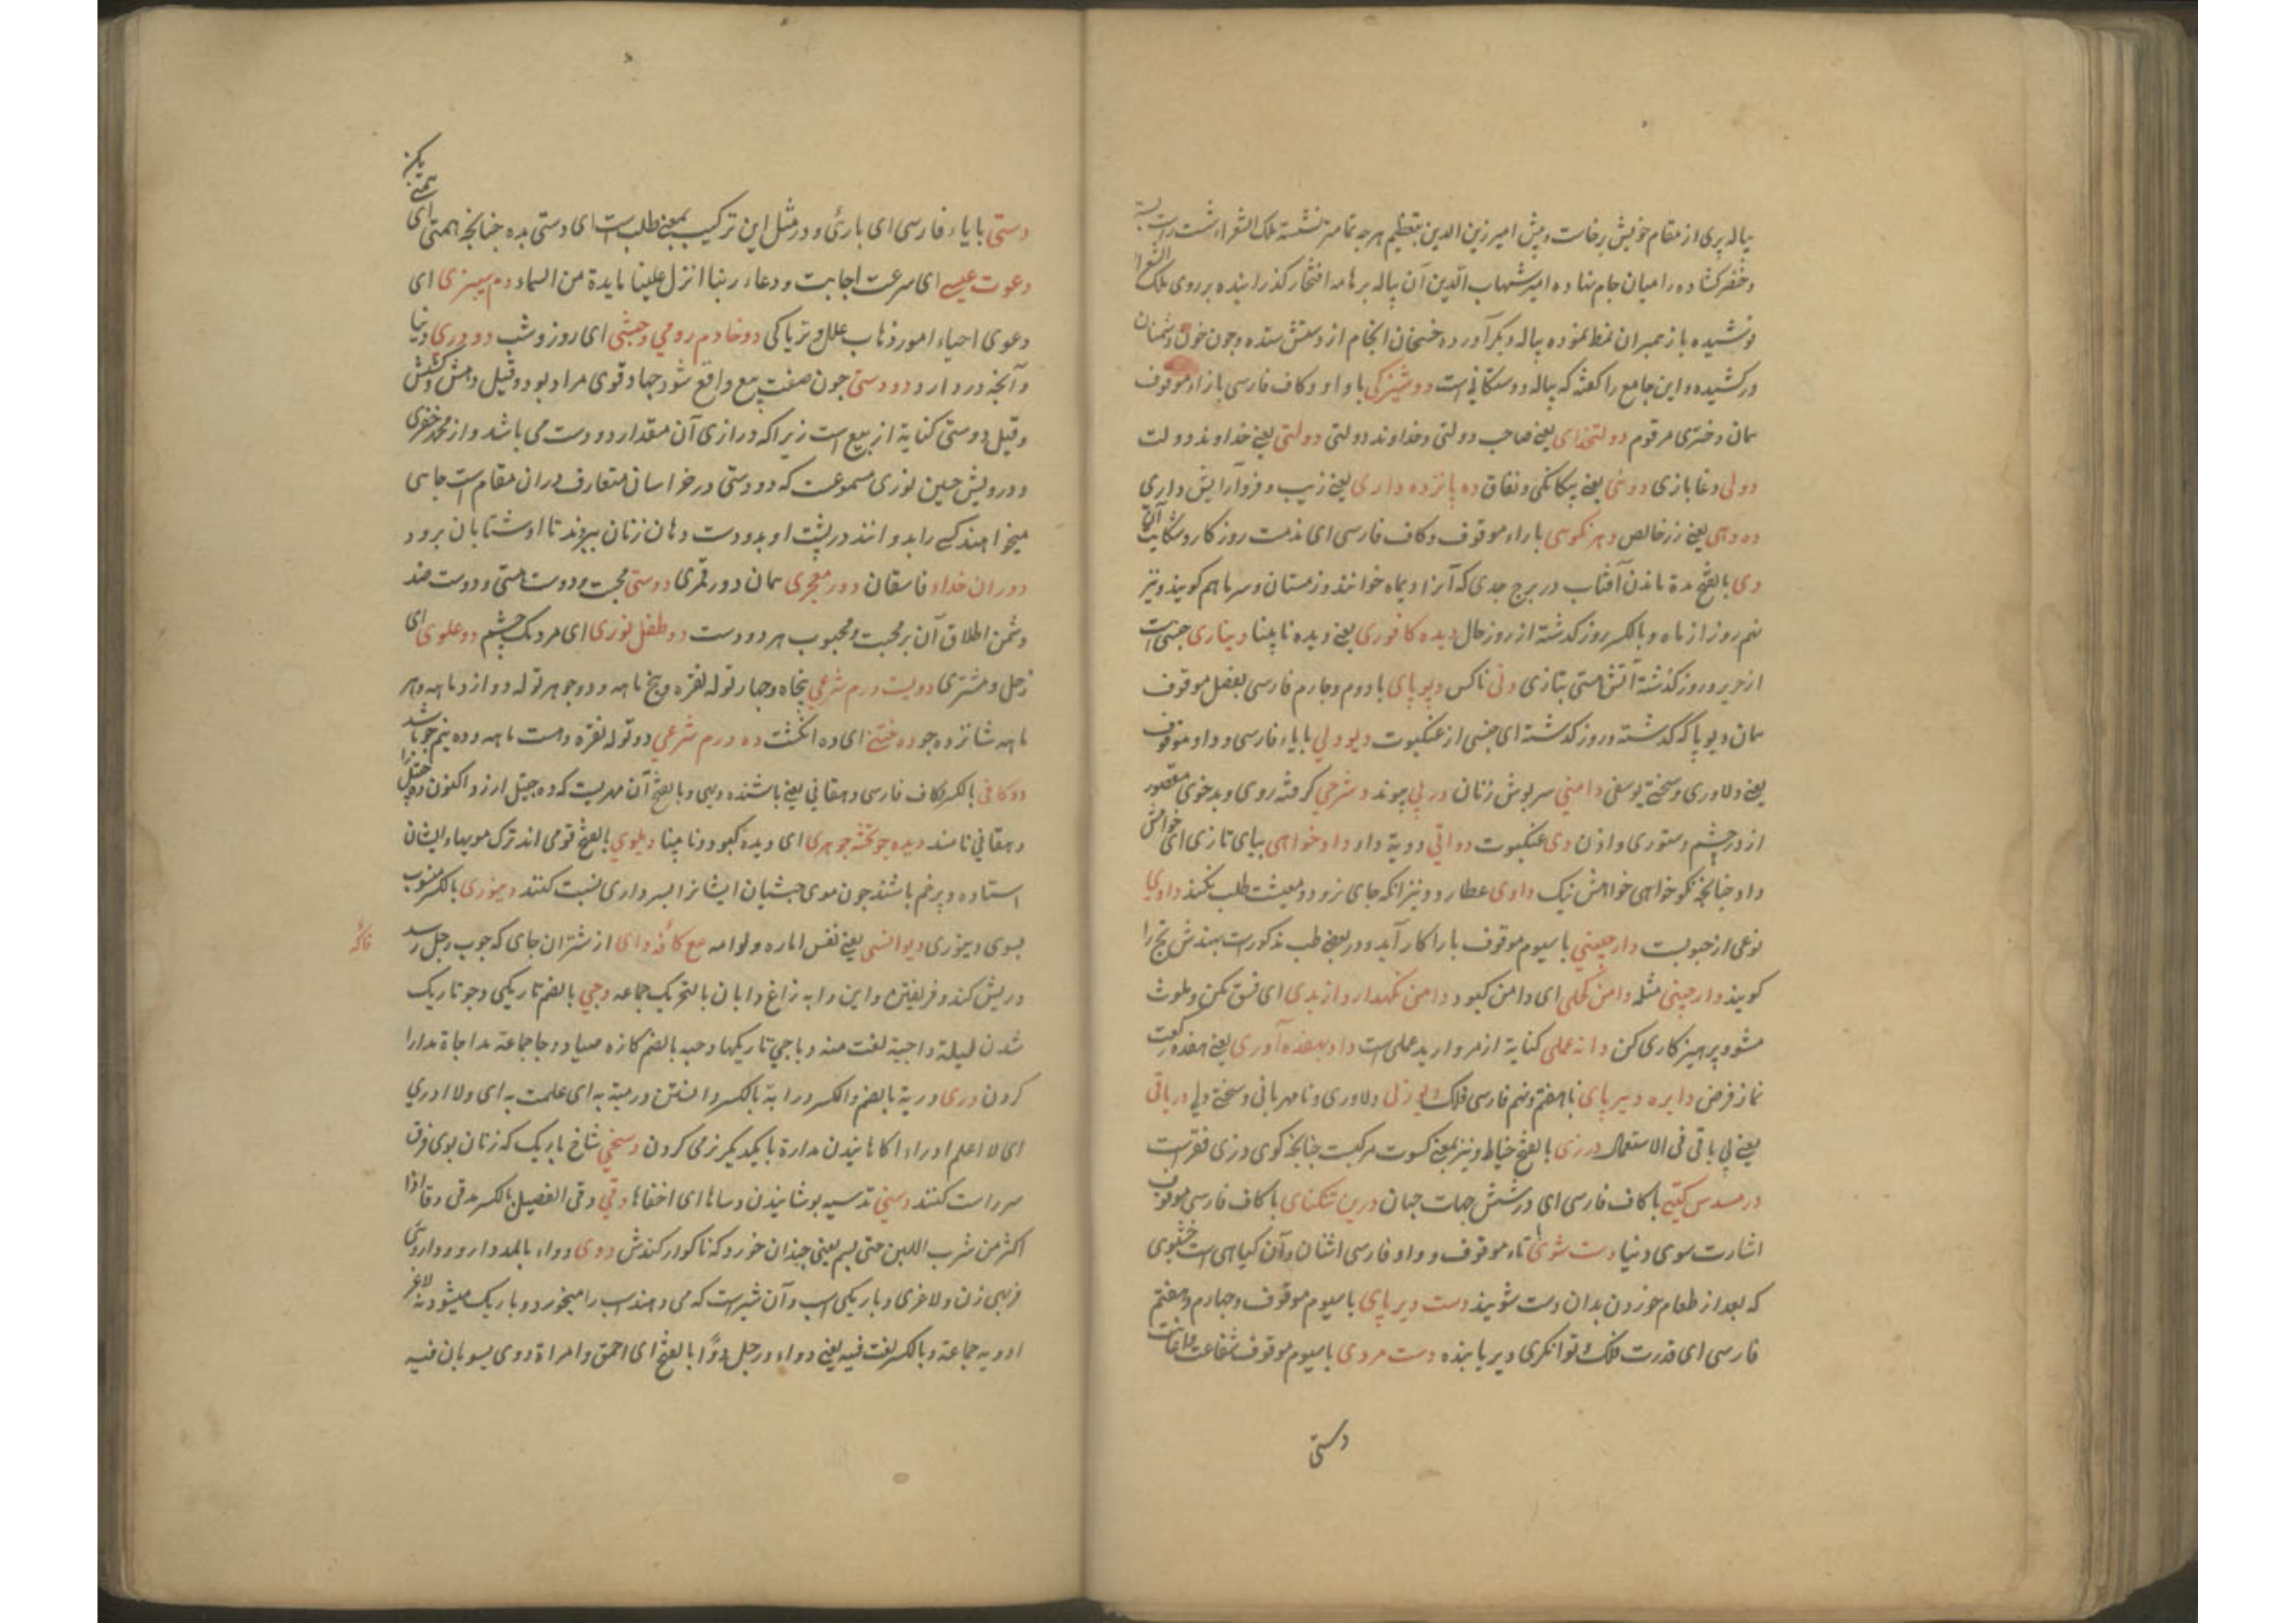 پیاله پری از مقام خویش برخاست و پیش امیر زین الدین بتعظیم هر چه تمامتر نشسته ملک الشعراء شست راست بسته
و خنصر کشاده را میان جام نهاده امیر شهاب الدین آن پیاله برهامه افتخار گذرانیده بر روی ملک الشعرا
نوشیده باز همبران نمط نموده پیاله دیگر آورده خان از دستش ستده و چون خون دشمنان
درکشیده و این جامع را گفته که پیاله دوستکانی است دوشیزکی با واو و کاف فارسی با زاء موقوف
همان دختری مرقوم دولتخدای یعنی صاحب دولتی و خداوند دولتی دولتی یعنی خداوند دولت
دولی دغابازی دوئی یعنی بیکانکی و نفاق ده پانزده داری یعنی زیب و فر و آرایش داری
ده دهی یعنی زر خالص دهر نکوهی با راء موقوف و کاف فارسی ای مذمت روزکار و شکایت آن
دی بالفتح مدة ماندن آفتاب در برج جدی که آنرا دیماه خوانند و زمستان و سرما هم کویند و نیز
نهم روز از ماه و بالکسر روز کذشته از روز حال دیده کافوری یعنی دیده نابینا دیناری جنسی است
از حریر و روز کذشته آتش مستی بتازی دنی ناکس دیوپای با دوم و چارم فارسی بفصل موقوف
همان دیوپا که کذشته و روز کذشته ای جنسی از عنکبوت دیودلی با یاء فارسی و واو موقوف
یعنی دلاوری و سختی یوسفی دامنی سرپوش زنان در پی پیوند دشرخی کرفته روی و بدخوی مقصور
از در چشم دستوری و اذن دی عنکبوت دواتی دویة دار دادخواهی بیای تازی ای خواهش
داد چنانچه نکوخواهی خواهش نیک داوی عطارد و نیز انکه جای نرود و معیشت طلب نکند داوی
نوعی از حبوبست دارچینی با سیوم موقوف باراء کار آید و در بعضی طب مذکورست بهندش تج را
کویند دارچینی مثله دامن کحلی ای دامن کبود دامن نکهدار از بدی ای فسق مکن و ملوث
مشو و پرهیزکاری کن دانه عملی کنایة از مروارید عملی است داد بهفده آوری یعنی هفده رکعت
نماز فرض دایره دیرپای با هفتم و نهم فارسی فلک دلاوری و نامهربانی و سختی دلی در باقی
یعنی لی باقی فی الاستعمال درزی بالفتح خیاط و نیز بمعنی کسوت مرکبست چنانچه کوی درزی فقرست
در مسدس کیتی با کاف فارسی ای در شش جهات جهان درین تنکنای با کاف فارسی موقوف
اشارت سوی دنیا دست شوی با تاء موقوف و واو فارسی اشنان و آن کیاهی است خشبوی
که بعد از طعام خوردن بدان دست شویند دست دیرپای با سیوم موقوف و چهارم و هفتم
فارسی ای قدرت فلک و توانکری دیر پاینده دست مردی با سیوم موقوف شفاعت
دستی
دستی با یاء فارسی ای باری و در مثل این ترکیب بمعنی طلب است ای دستی بده چنانچه همتی ای
همتی بکن
دعوت عیسی ای سرعت اجابت و دعاء ربنا انزل علینا مایدة من السماء دم سیزی ای
دعوی احیاء امور ذهاب علل و تریاکی دو خادم رومی و حبشی ای روز و شب دو دری دنیا
و آنچه دو در دارد دو دستی چون صفت تیغ واقع شود جهاد قوی مراد بود و قیل دهش و کشش
و قیل دو دستی کنایة از تیغ است زیرا که درازی آن مقدار دو دست می باشد و از محمد خضری
و درویش حسین نوری مسموعست که دو دستی در خراسان متعارف دران مقام است جاسی
میخواهند کسی را بدوانند در پشت او بدو دست دهان زنان ببرند تا او شتابان برود
دوران خداء فاسقان دور معجری همان دور قمری دوستی محبت و دوست هستی و دوست ضد
دشمن اطلاق آن بر محبت و محبوب هر دو دست دو طفل نوری ای مردمک چشم دو علوی ای
زحل و مشتری دویست درم شرعی پنجاه و چهار توله نقره و پنج ماهه و دو جو هر توله دوازده ماهه و هر
ماهه شانزده جو ده خشتی ای ده انکشت ده درم شرعی دو توله نقره و هشت ماهه و ده نیم جو باشد
دوکانی بالکسر و کاف فارسی دهقانی یعنی باشنده دیهی و بالفتح آن مهریست که ده چیتل ارزد اکنون ده چیتل را
دهقانی نامند دیده جو کشته جوهری ای دیده کبود و نابینا دیلوی بالفتح قومی اند ترک مویهاء ایشان
استاده و پر خم باشند چون موی حبشیان ایشانرا بسرداری نسبت کنند دینوری بالکسر منسوب
بسوی دینوری دیو انسی یعنی نفس اماره و لوامه مع کافه دای از شتران جای که چوب رحل رسد
فاکه
و ریش کند و فریفتن و این دایه زاغ دایان بالتحریک جماعه دجی بالضم تاریکی و جو تاریک
شدن لیلة داجیة لغت منه دیاجی تاریکها دجیه بالضم کازه صیاد دجا جماعة مداجاة مدارا
کردن دری دریة بالضم و الکسر درایة بالکسر دانستن دریت به ای علمت به ای ولا ادری
ای لا اعلم ادراء اکاهانیدن مدارة با یکدیکر نرمی کردن دسخی شاخ باریک که زنان بوی فرق
سر راست کنند دسی تدسیه پوشانیدن دساها ای اخفاها دقی دقی الفصیل بالکسر دقی دقا اذا
اکثر من شرب اللبن حتی بشم یعنی چندان خورد که ناکوار کندش دوی دواء بالمد دارو و داروئی
فربهی زن و لاغری و باریکی اسپ و آن شیرست که می دهند اسپ را میخورد و باریک میشود نه لاغر
ادویه جماعة و بالکسر لغت فیه یعنی دواء و رجل دوا بالفتح ای احمق و امراة دوی یسویان فیه